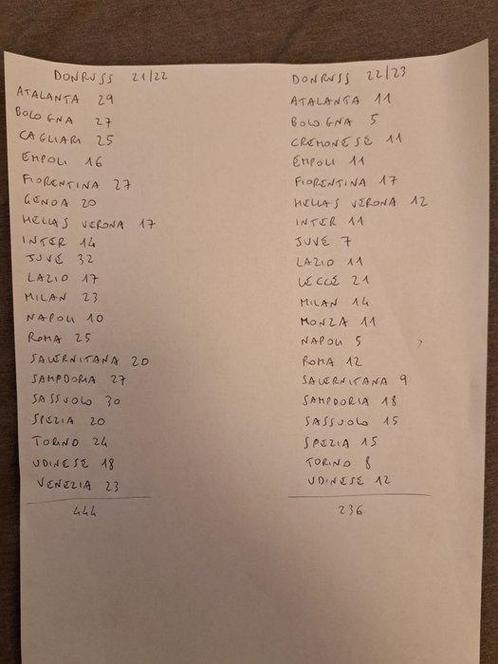 DONRUSS 21/22
ATALANTA 29
BOLOGNA 27
CAGLIARI 25
EMPOLI 16
FIORENTINA 27
GENOA 20
HELLAS VERONA 17
INTER 14
JUVE 32
LAZIO 17
MILAN 23
NAPOLI 10
ROMA 25
SALERNITANA 20
SAMPDORIA 27
SASSUOLO 30
SPEZIA 20
TORINO 24
UDINESE 18
VENEZIA 23
444
DONRUSS 22/23
ATALANTA 11
BOLOGNA 5
CREMONESE 11
EMPOLI 11
FIORENTINA 17
HELLAS VERONA 12
INTER 11
JUVE 7
LAZIO 11
LECCE 21
MILAN 14
MONZA 11
NAPOLI 5
ROMA 12
SALERNITANA 9
SAMPDORIA 18
SASSUOLO 15
SPEZIA 15
TORINO 8
UDINESE 12
236